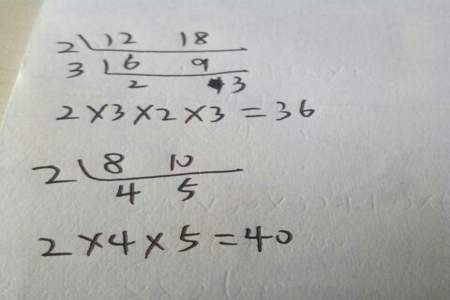 2 12 18
3 6 9
2 3
2×3×2×3=36
2 8 10
4 5
2×4×5=40